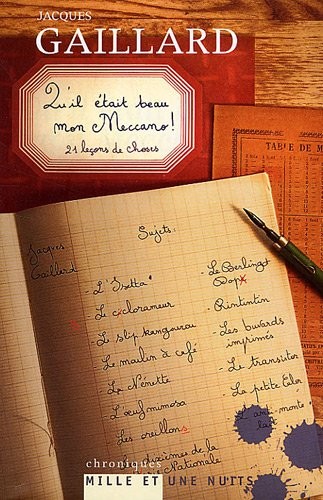 JACQUES
GAILLARD
Qu'il était beau
mon Meccano!
21 leçons de choses
TABLE DE M
Jacques
Gaillard
Sujets:
- L'Isetta
- Le ciclorameur
- Le slip kangourou
- Le moulin à café
- La Nénette
- L'œuf mimosa
- Les oreillons
dixièmes de
la Nationale
- Le Berlingot
Dop
- Rintintin
- Les buvards
imprimés
- Le transistor
- La petite Esler
- L'anti-monte
lait
chroniques
MILLE ET UNE NUITS